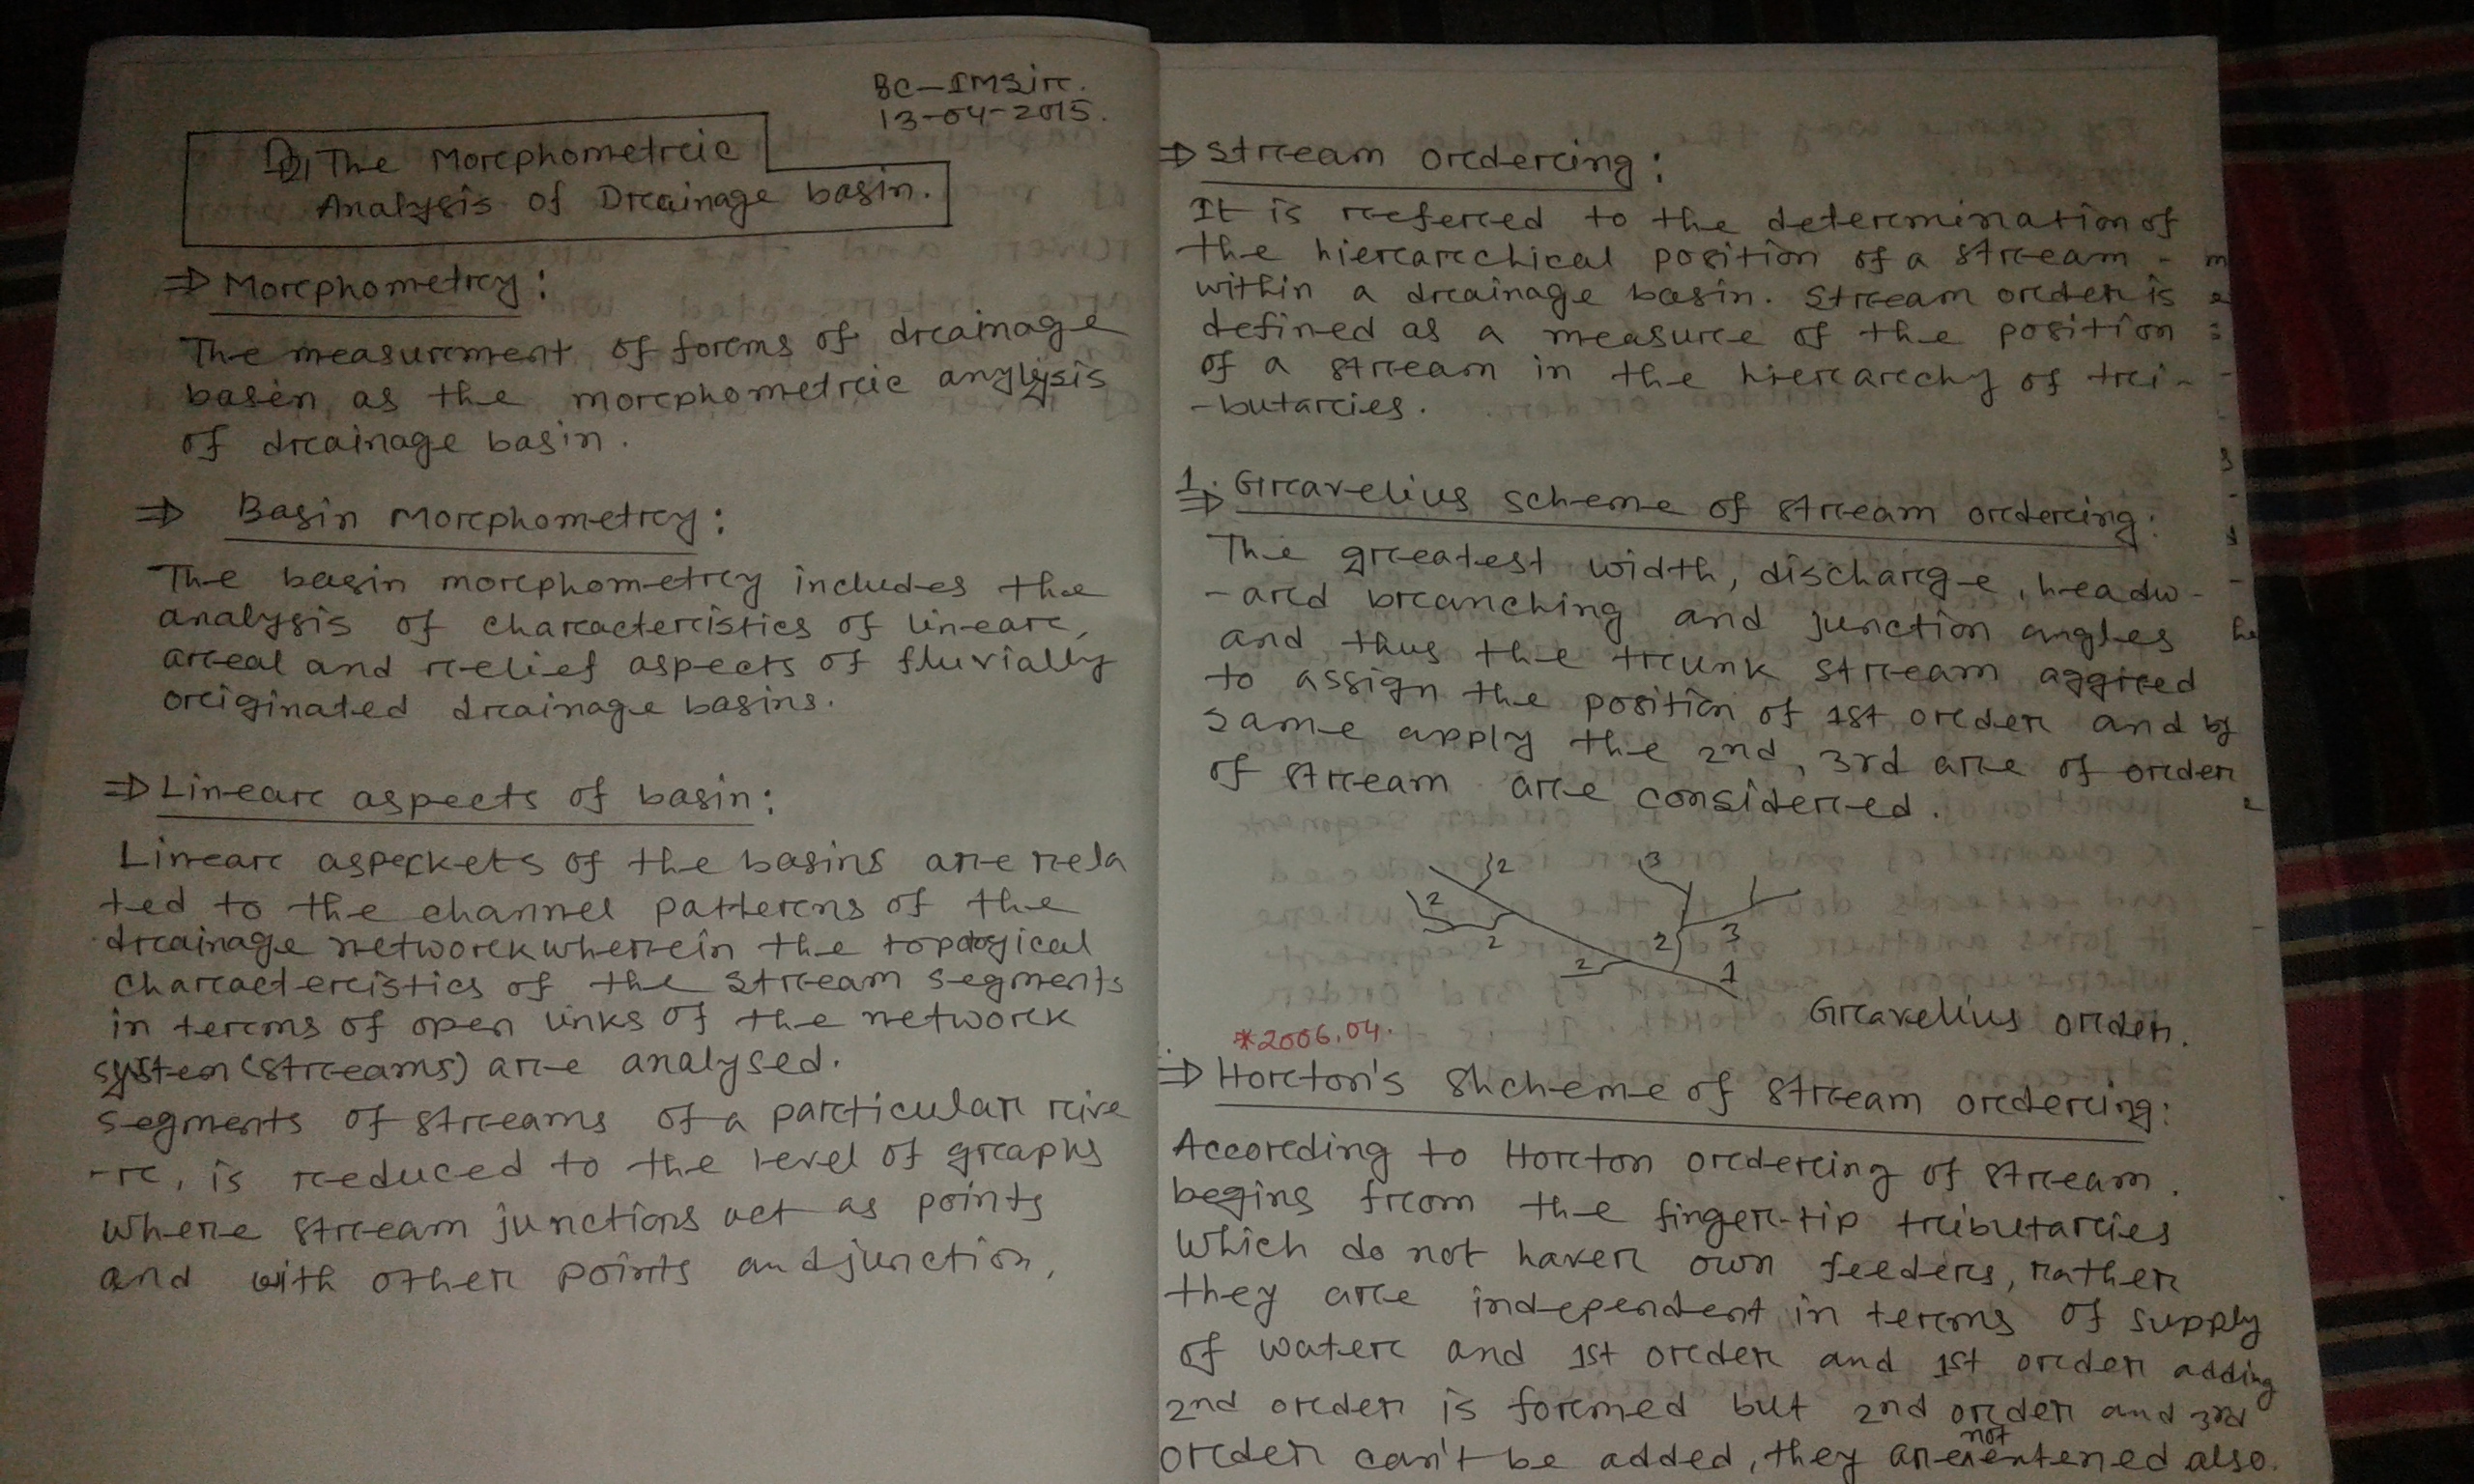 BC-IMSir.
13-04-2015.
The Morphometric
Analysis of Drainage basin.
⇒ Morphometry:
The measurment of forms of drainage
basin, as the morphometric anylysis
of drainage basin.
⇒ Basin Morphometry:
The basin morphometry includes the
analysis of characteristics of linear,
areal and relief aspects of fluvially
originated drainage basins.
⇒ Linear aspects of basin:
Linear aspeckets of the basins are rela
ted to the channel patterns of the
drainage network wherein the topological
characteristics of the stream segments
in terms of open links of the network
system (streams) are analysed.
segments of streams of a particular rive
-r, is reduced to the level of graphs
where stream junctions act as points
and with other points and junction,
⇒ Stream ordering:
It is referred to the determination of
the hierarchical position of a stream -
within a drainage basin. Stream order is
defined as a measure of the position
of a stream in the hierarchy of tri-
-butaries.
1. ⇒ Gravelius scheme of stream ordering:
The greatest width, discharge, headw-
-ard branching and junction angles
and thus the trunk stream aggreed
to assign the position of 1st order and by
same apply the 2nd, 3rd are of order
of stream are considered.
2 3
2 2 2 3
2 1
Gravelius order.
*2006,04.
⇒ Horton's Shcheme of stream ordering:
According to Horton ordering of stream.
begins from the finger-tip tributaries
which do not haver own feeders, rather
they are independent in terms of supply
of water and 1st order and 1st order adding
2nd order is formed but 2nd order and 3rd
order can't be added, they are not entered also.